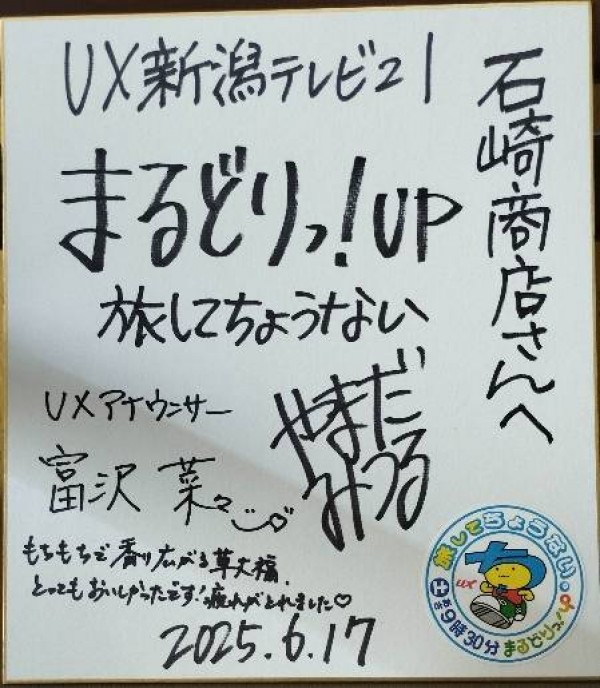 石崎商店さんへ
UX新潟テレビ21
まるどりっ!UP
旅してちょうない
UXアナウンサー
富沢 菜々
やまだ
みつる
もちもちで香り広がる草大福、
とってもおいしかったです!疲れがとれました♡
2025.6.17
旅してちょうない。
UX
土
あさ
9時30分 まるどりっ!